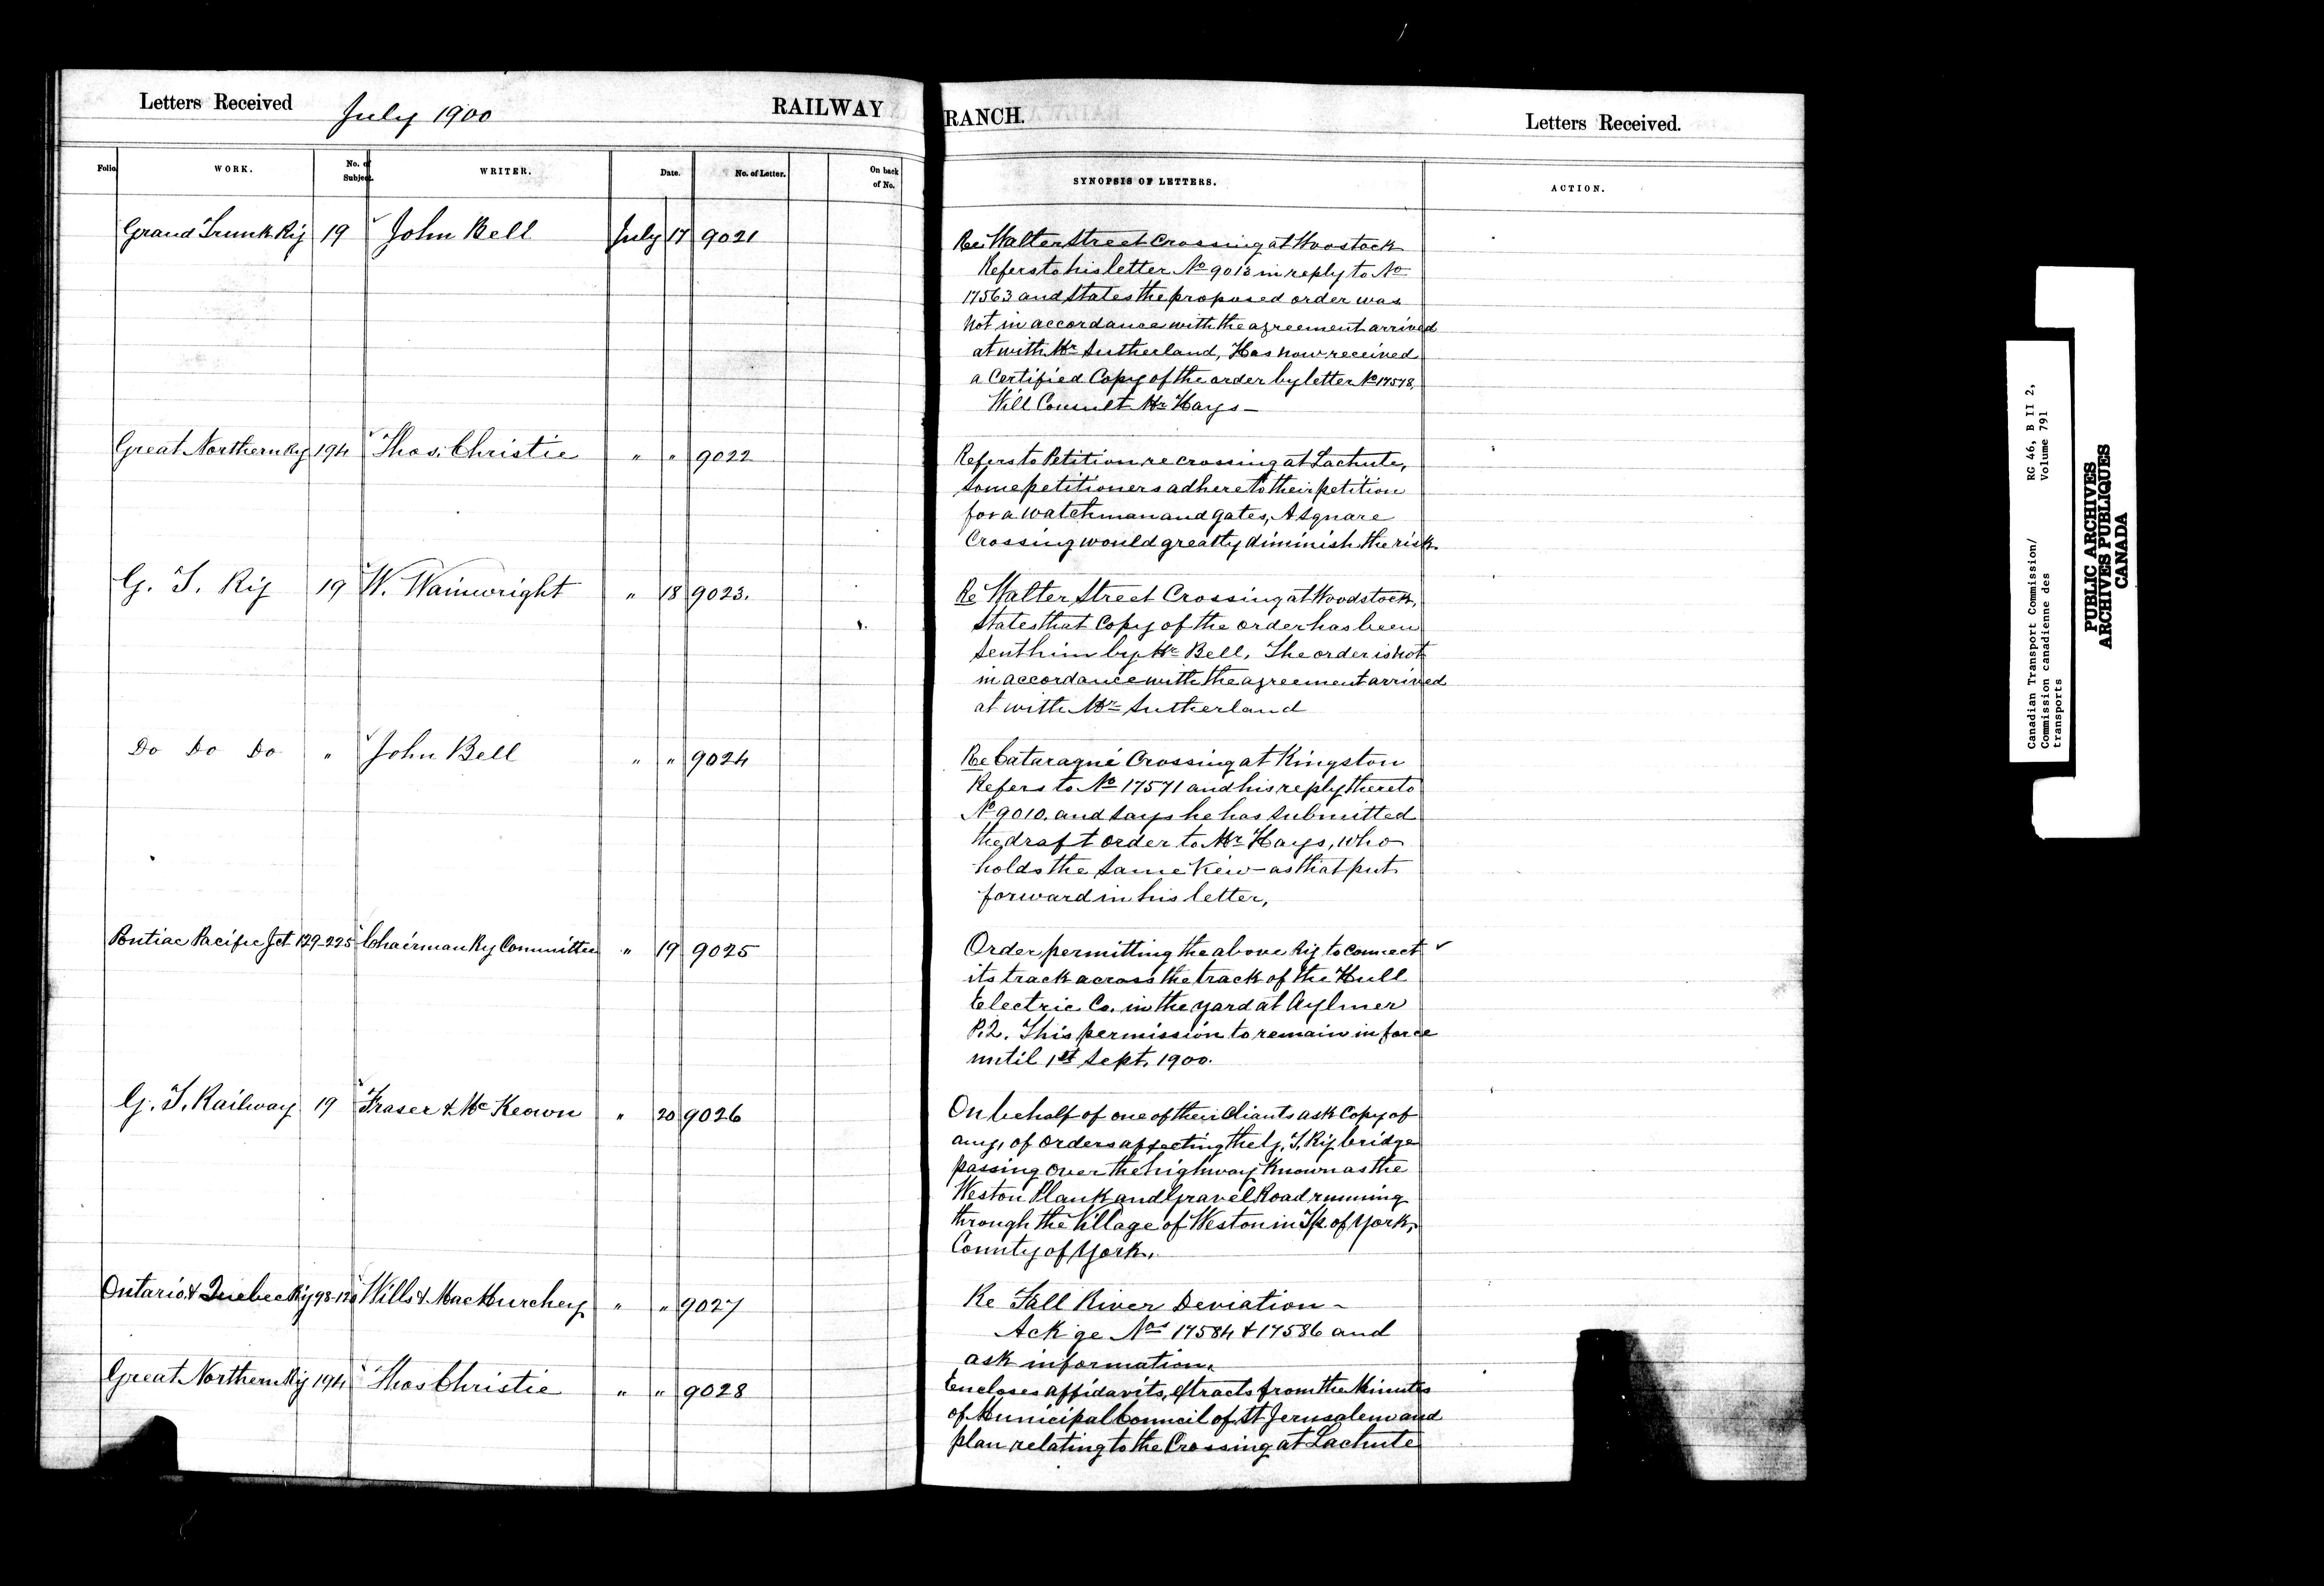 Letters Received July 1900 RAILWAY
Folio WORK. No. of Subject. WRITER. Date. No. of Letter. On back of No.
Grand Trunk Ry 19 John Bell July 17 9021
Great Northern Ry 194 Thos. Christie " " 9022
G. T. Ry 19 W. Wainwright " 18 9023.
Do Do Do " John Bell " " 9024
Pontiac Pacific Jct 129-225 Chairman Ry Committee " 19 9025
G. T. Railway 19 Fraser & McKeown " 20 9026
Ontario & Quebec Ry 98-120 Wills & MacMurchey " " 9027
Great Northern Ry 194 Thos Christie " " 9028
RANCH. Letters Received.
SYNOPSIS OF LETTERS. ACTION.
Re Walter Street Crossing at Woostock
Refers to his letter No 9013 in reply to No
17563 and states the proposed order was
not in accordance with the agreement arrived
at with Mr Sutherland, Has now received
a Certified Copy of the order by letter No 17578,
Will Consult Mr Hays –
Refers to Petition re crossing at Lachute,
some petitioners adhere to their petition
for a watchman and gates, A square
Crossing would greatly diminish the risk.
Re Walter Street Crossing at Woodstock,
States that Copy of the order has been
sent him by Mr Bell. The order is not
in accordance with the agreement arrived
at with Mr Sutherland
Re Cataraqué Crossing at Kingston
Refers to No 17571 and his reply thereto
No 9010. and says he has submitted
the draft order to Mr Hays, who
holds the same view – as that put
forward in his letter,
Order permitting the above Ry to connect ✓
its track across the track of the Hull
Electric Co. in the yard at Aylmer
P.Q. This permission to remain in force
until 1st Sept. 1900.
On behalf of one of their Cliants ask Copy of
any, of orders affecting the G. T. Ry bridge
passing over the highway known as the
Weston Plank and Gravel Road running
through the Village of Weston in Tp. of York,
County of York.
Re Fall River Deviation –
Ack'ge Nos 17584 & 17586 and
ask information.
Encloses affidavits, extracts from the Minutes
of Municipal Council of St Jerusalem and
plan relating to the Crossing at Lachute
Canadian Transport Commission/ RG 46, B II 2,
Commission canadienne des Volume 791
transports
PUBLIC ARCHIVES
ARCHIVES PUBLIQUES
CANADA